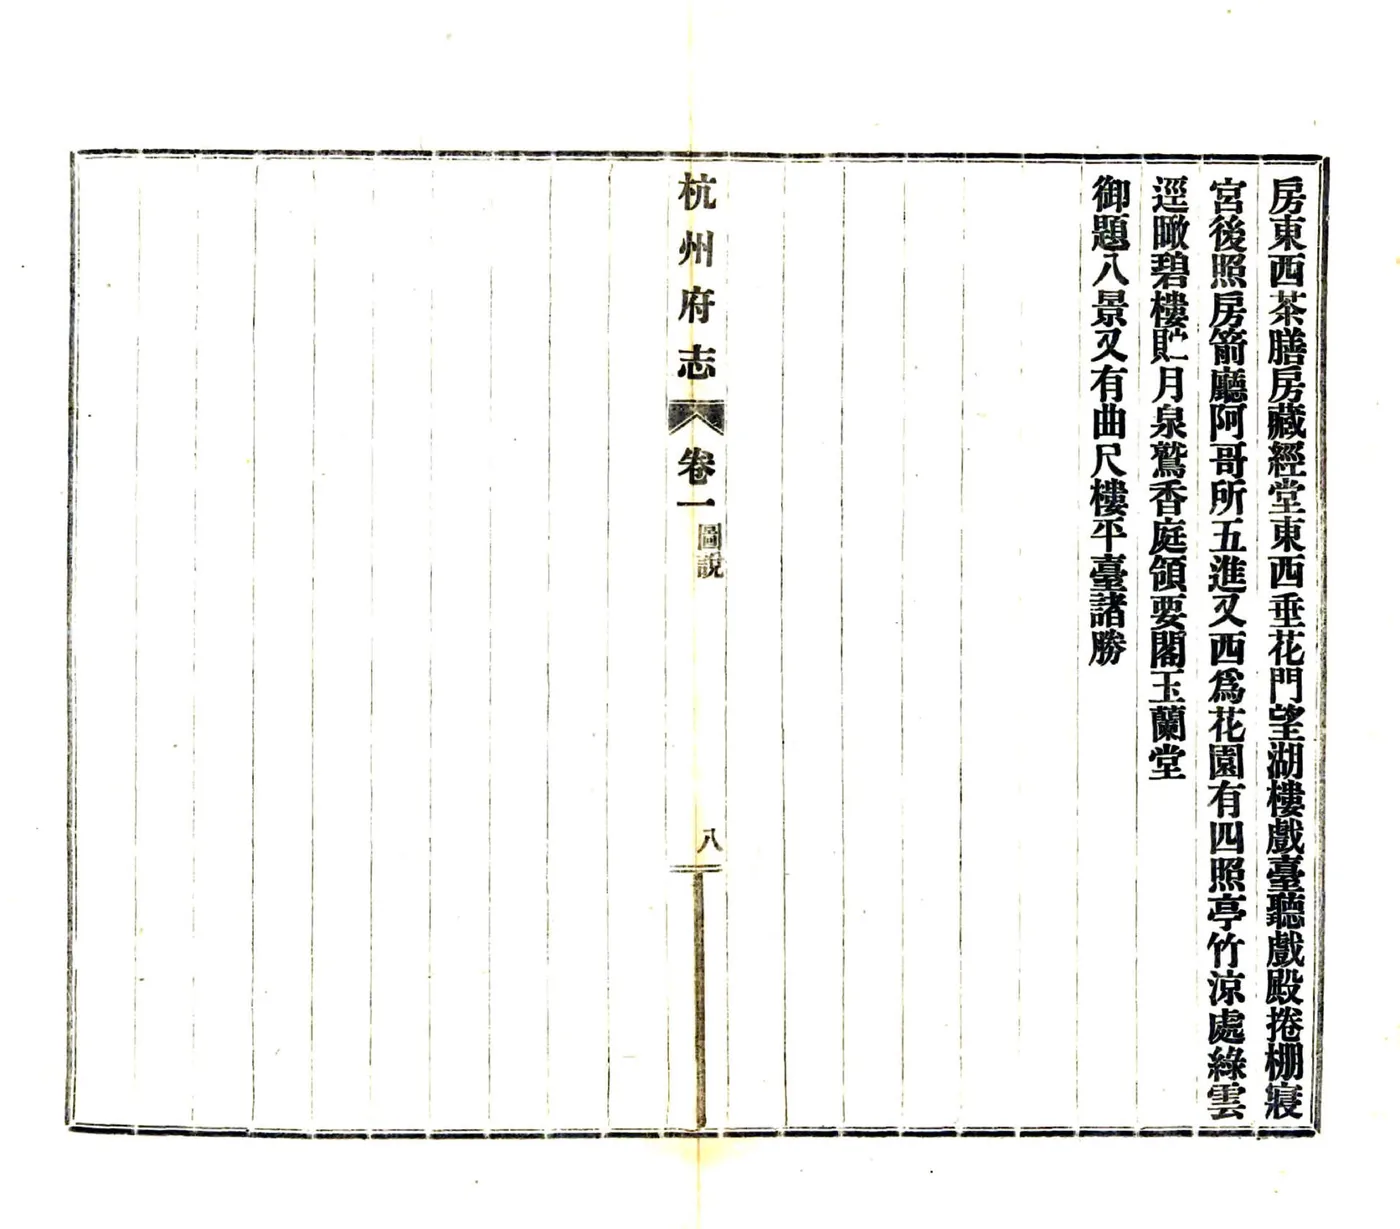 房東西茶膳房藏經堂東西垂花門望湖樓戲臺聽戲殿捲棚寢
宮後照房箭廳阿哥所五進又西爲花園有四照亭竹涼處綠雲
逕瞰碧樓貯月泉鷲香庭領要閣玉蘭堂
御題八景又有曲尺樓平臺諸勝
杭州府志
卷一
圖說
八